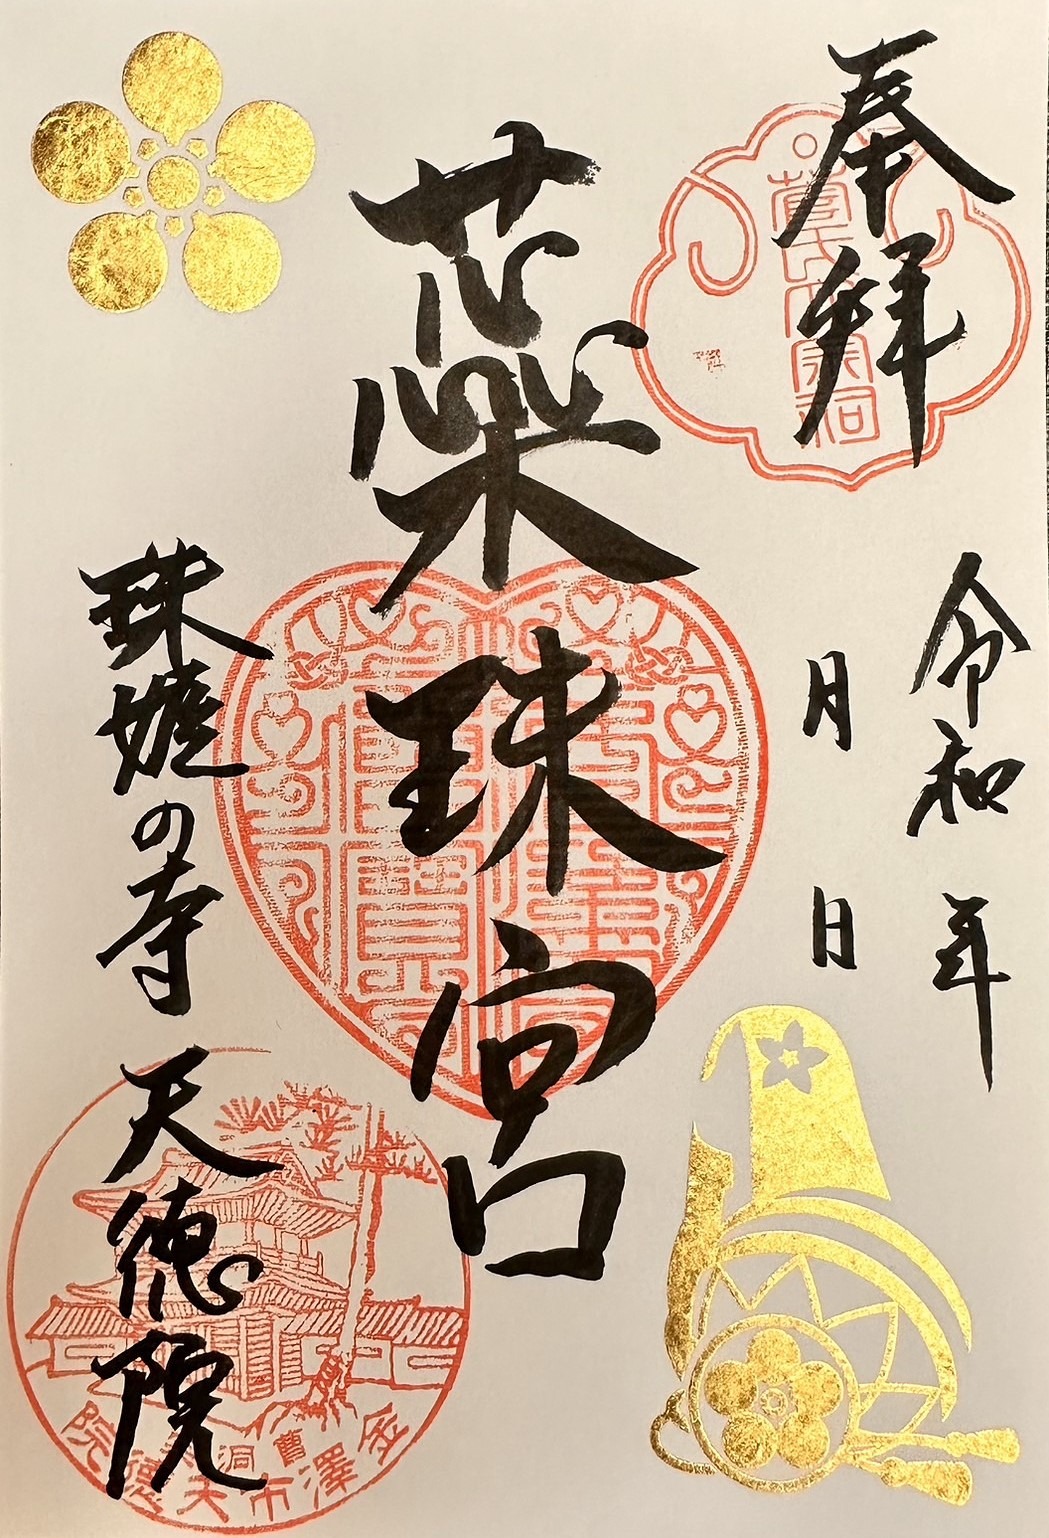 奉拝
令和 年
月 日
蕊珠宮
珠姫の寺 天徳院
金澤市
天德院